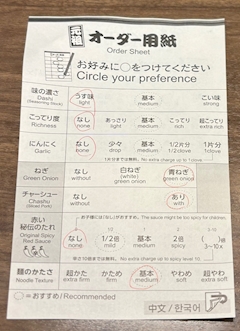 元祖 オーダー用紙
Order Sheet
お好みに○をつけてください
Circle your preference
味の濃さ うす味 基本 こい味
Dashi light medium strong
(Seasoning Stock)
こってり度 なし あっさり 基本 こってり 超こってり
Richness none light medium rich extra rich
にんにく なし 少々 基本 1/2片分 1片分
Garlic none drop medium 1/2clove 1clove
1片分まで無料。 No extra charge up to 1clove
ねぎ なし 白ねぎ 青ねぎ
Green Onion without (white) green onion
green onion
チャーシュー なし あり
Chashu without with
(Sliced Pork)
赤い
秘伝のたれ
Original Spicy
Red Sauce
お子様には(なし)がおすすめ。 The sauce might be too spicy for children
なし 1/2倍 基本 2倍
none mild medium spicy 3~10x
No extra charge up to spicy level 10
麺のかたさ 超かた かため 基本 やわめ 超やわ
Noodle Texture extra firm firm medium soft extra soft
○=おすすめ/Recommended
中文 / 한국어